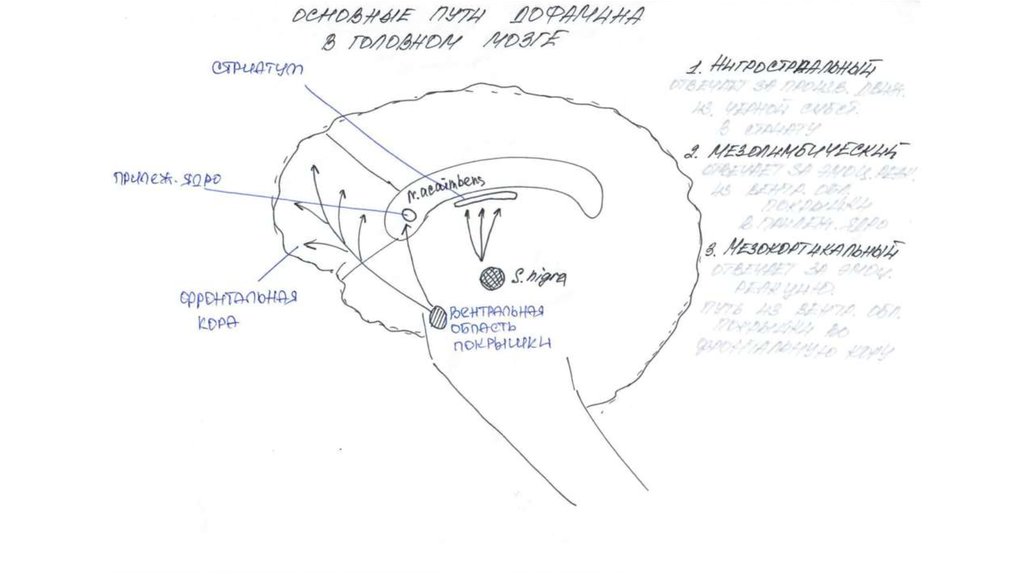 ОСНОВНЫЕ ПУТИ ДОФАМИНА
В ГОЛОВНОМ МОЗГЕ
СТРИАТУМ
ПРИЛЕЖ. ЯДРО
ФРОНТАЛЬНАЯ
КОРА
N. accumbens
S. nigra
ВЕНТРАЛЬНАЯ
ОБЛАСТЬ
ПОКРЫШКИ
1. НИГРОСТРИАЛЬНЫЙ
ОТВЕЧАЕТ ЗА ПРОИЗВ. ДВИЖ.
ИЗ ЧЕРНОЙ СУБСТ.
В СТРИАТУ
2. МЕЗОЛИМБИЧЕСКИЙ
ОТВЕЧАЕТ ЗА ЭМОЦ.
ИЗ ВЕНТР. ОБЛ.
ПОКРЫШКИ
В ПРИЛЕЖ. ЯДРО
3. МЕЗОКОРТИКАЛЬНЫЙ
ОТВЕЧАЕТ ЗА ЭМОЦ.
РЕАКЦИЮ.
ПУТЬ ИЗ ВЕНТР. ОБЛ.
ПОКРЫШКИ ВО
ФРОНТАЛЬНУЮ КОРУ